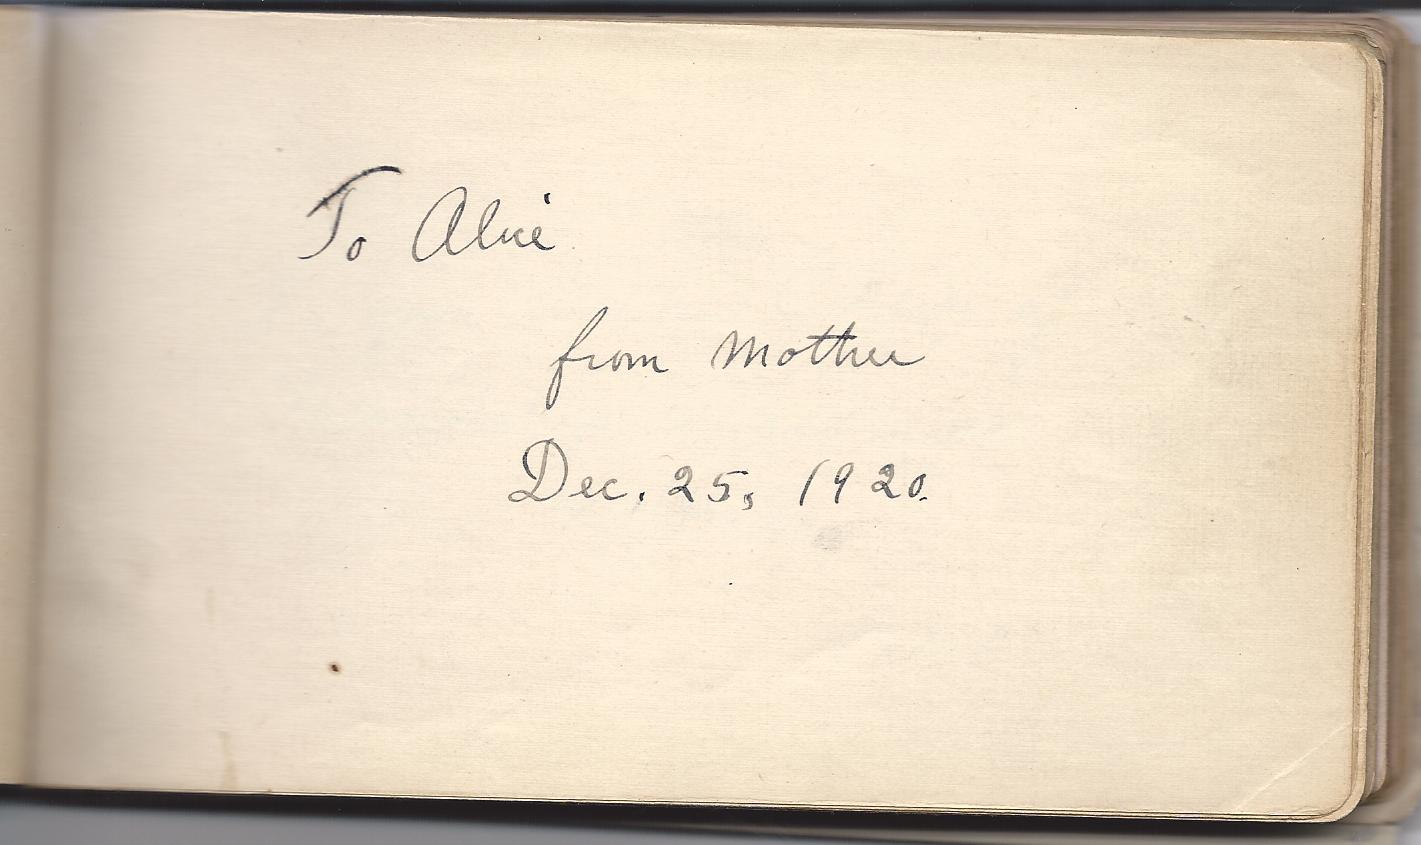 To Alice
from Mother
Dec. 25, 1920.